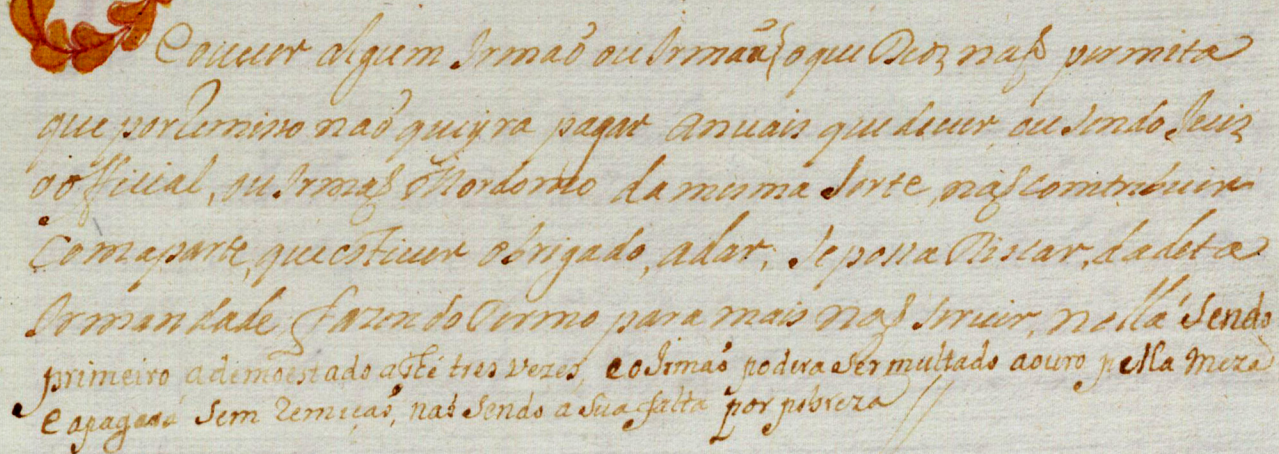 Couver algum Irmaõ ou Irmaã (o que Deoz naõ permita
que por temino naõ queyra pagar anuais que dever, ou sendo Juiz
ooficial, ou Irmaõ Mordomo da mesma sorte, naõ comtribuir
Com aparte, que estiver obrigado, adar, se possa Riscar, dadeta
Irmandade fazendo termo para mais naõ servir, nella sendo
primeiro ademoestado athé tres vezes, eo Irmaõ podera ser multado aouro pella meza
e apagará sem Remiçaõ, naõ sendo a sua falta por pobreza //